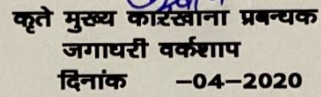 कृते मुख्य कारखाना प्रबन्धक
जगाधरी वर्कशाप
दिनांक –04–2020